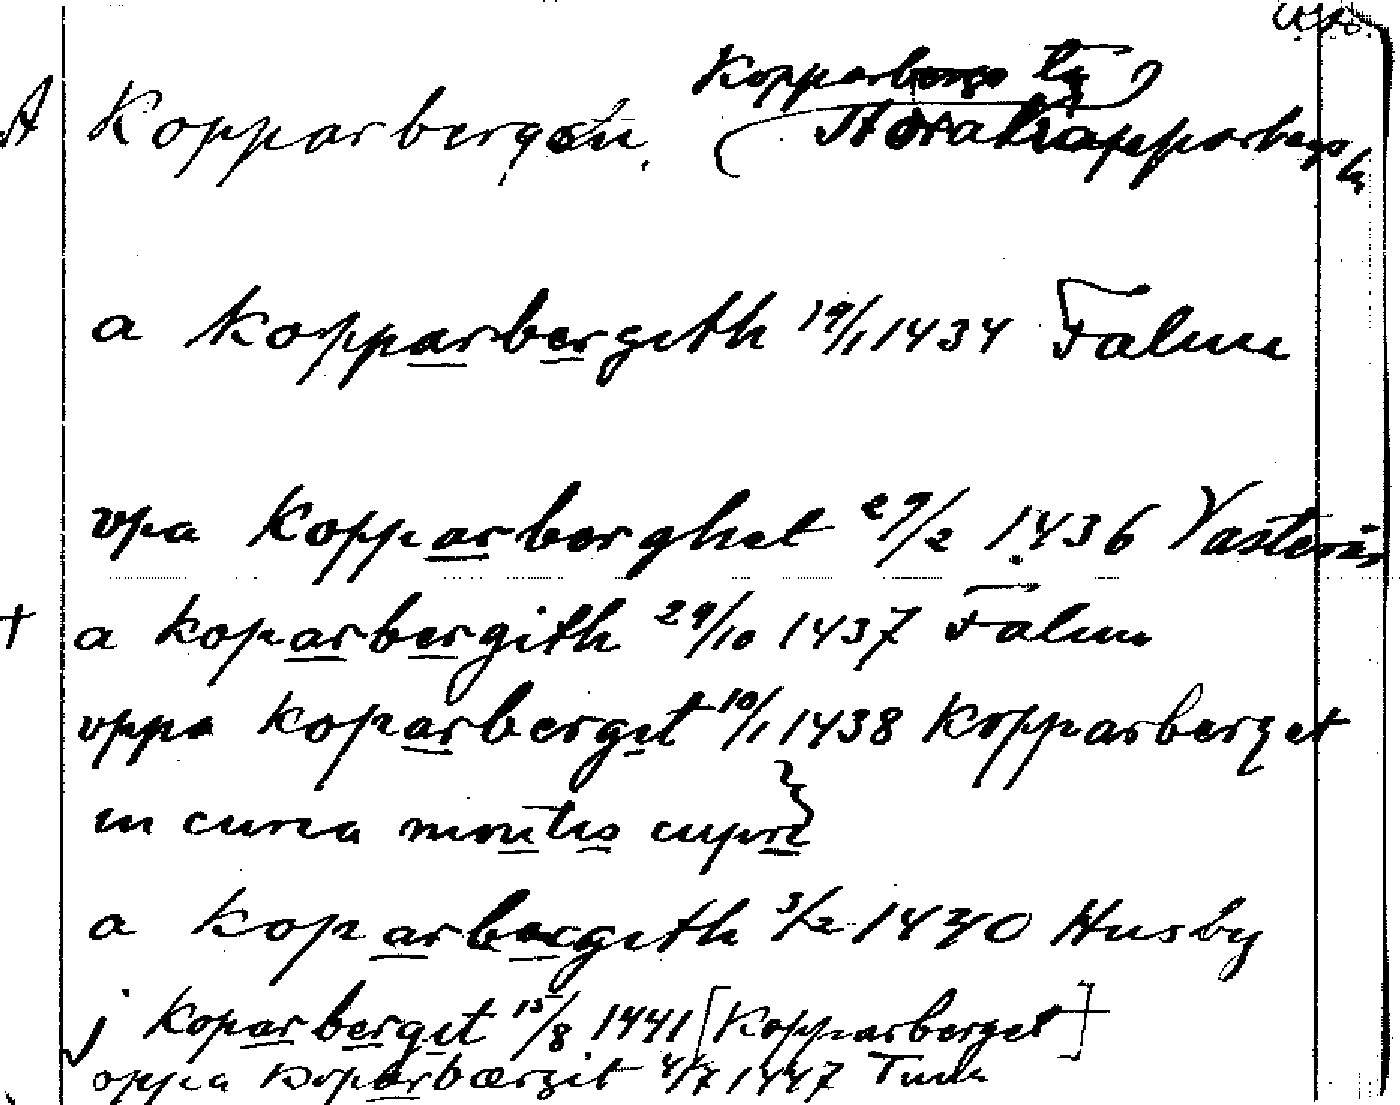 A Kopparbergen. Kopparbergs
Storakopparbergs
a kopparbergith 19/1 1434 Falun
vpa kopparberghet 29/2 1436 Västerås
+ a koparbergith 29/10 1437 Falun
vppa koparbergit 10/1 1438 Kopparberget
in curia montis cupri
a koparbergith 3/2 1440 Husby
j koparbergit 15/8 1441 [Kopparberget]
oppa koparbærgit 4/7 1447 Tuna